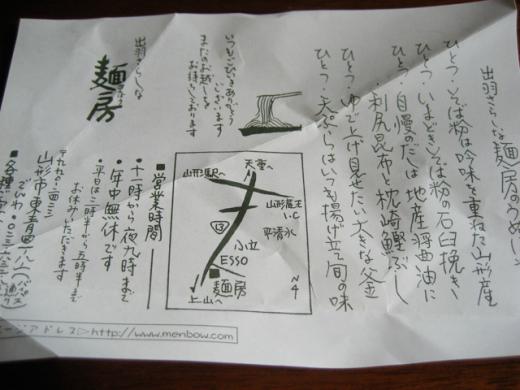 出羽さらしな 麺房のうめぃ
ひとつ・そば粉は吟味を重ねた山形産
ひとつ・いまどきそば粉の石臼挽き
ひとつ・自慢のだしは地産醤油に
利尻昆布と枕崎鰹ぶし
ひとつ・ゆで上げ見せたい大きな釜
ひとつ・天ぷらはいつも揚げ立て旬の味
いつもごひいきありがとう
ございます
またのお越しを
お待ちしております
出羽さらしな
麺房
天童へ
山形駅へ
山形蔵王
I.C
平清水
13
小立
ESSO
麺房
上山へ
N
4
■営業時間
・十一時から夜九時まで
・年中無休です
・平日は二時半から五時半まで
お休みいただきます
山形市東青田
でんわ・
■各種
アドレス▷http://www.menbow.com